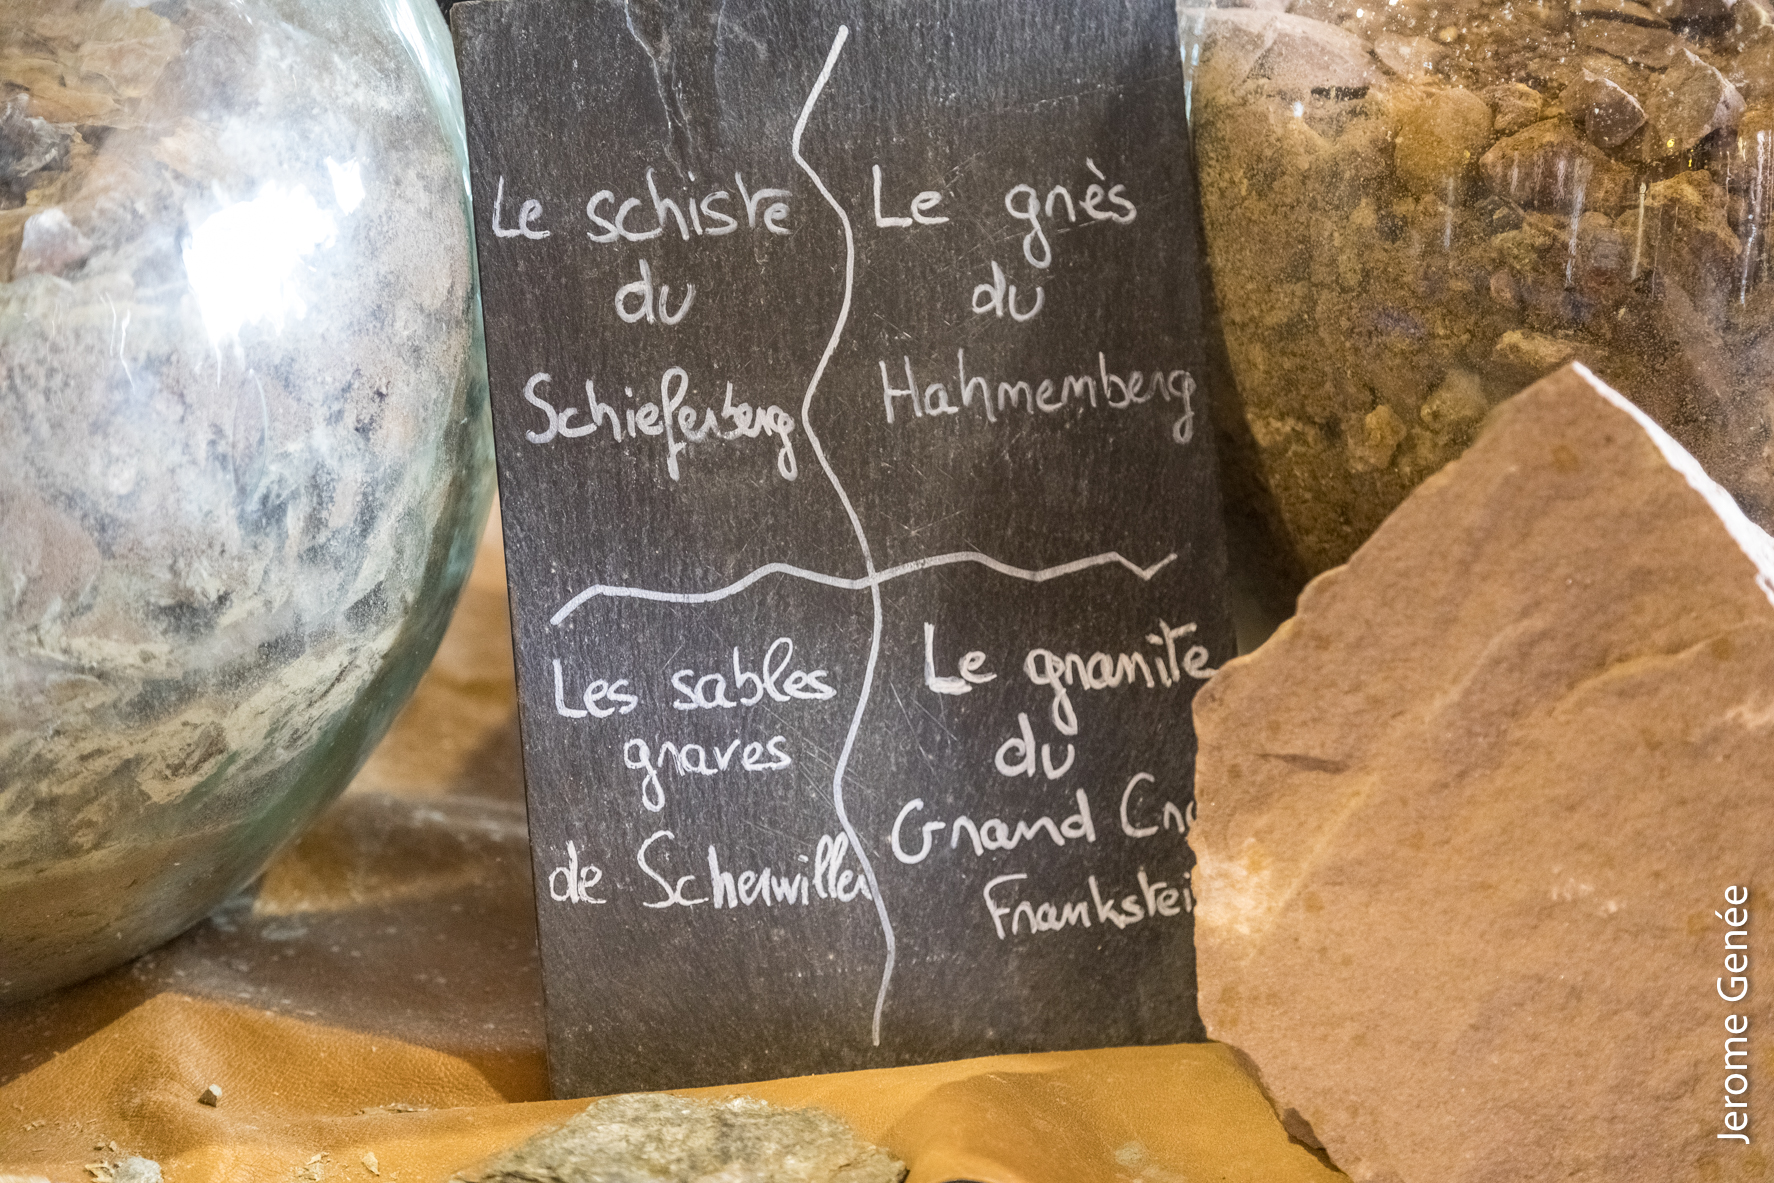 Le schiste
du
Schieferberg
Le gnès
du
Hahnenberg
Les sables
graves
de Scherwiller
Le granite
du
Grand
Jerome Genée